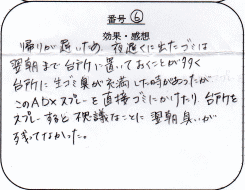 番号 ⑥
効果・感想
帰りが遅いため 夜遅くに出たゴミは
翌朝まで台所に置いておくことが多く
台所に生ゴミ臭が充満した時があったが
このADXスプレーを直接ゴミにかけたり 台所を
スプレーすると 不思議なことに 翌朝臭いが
残ってなかった。